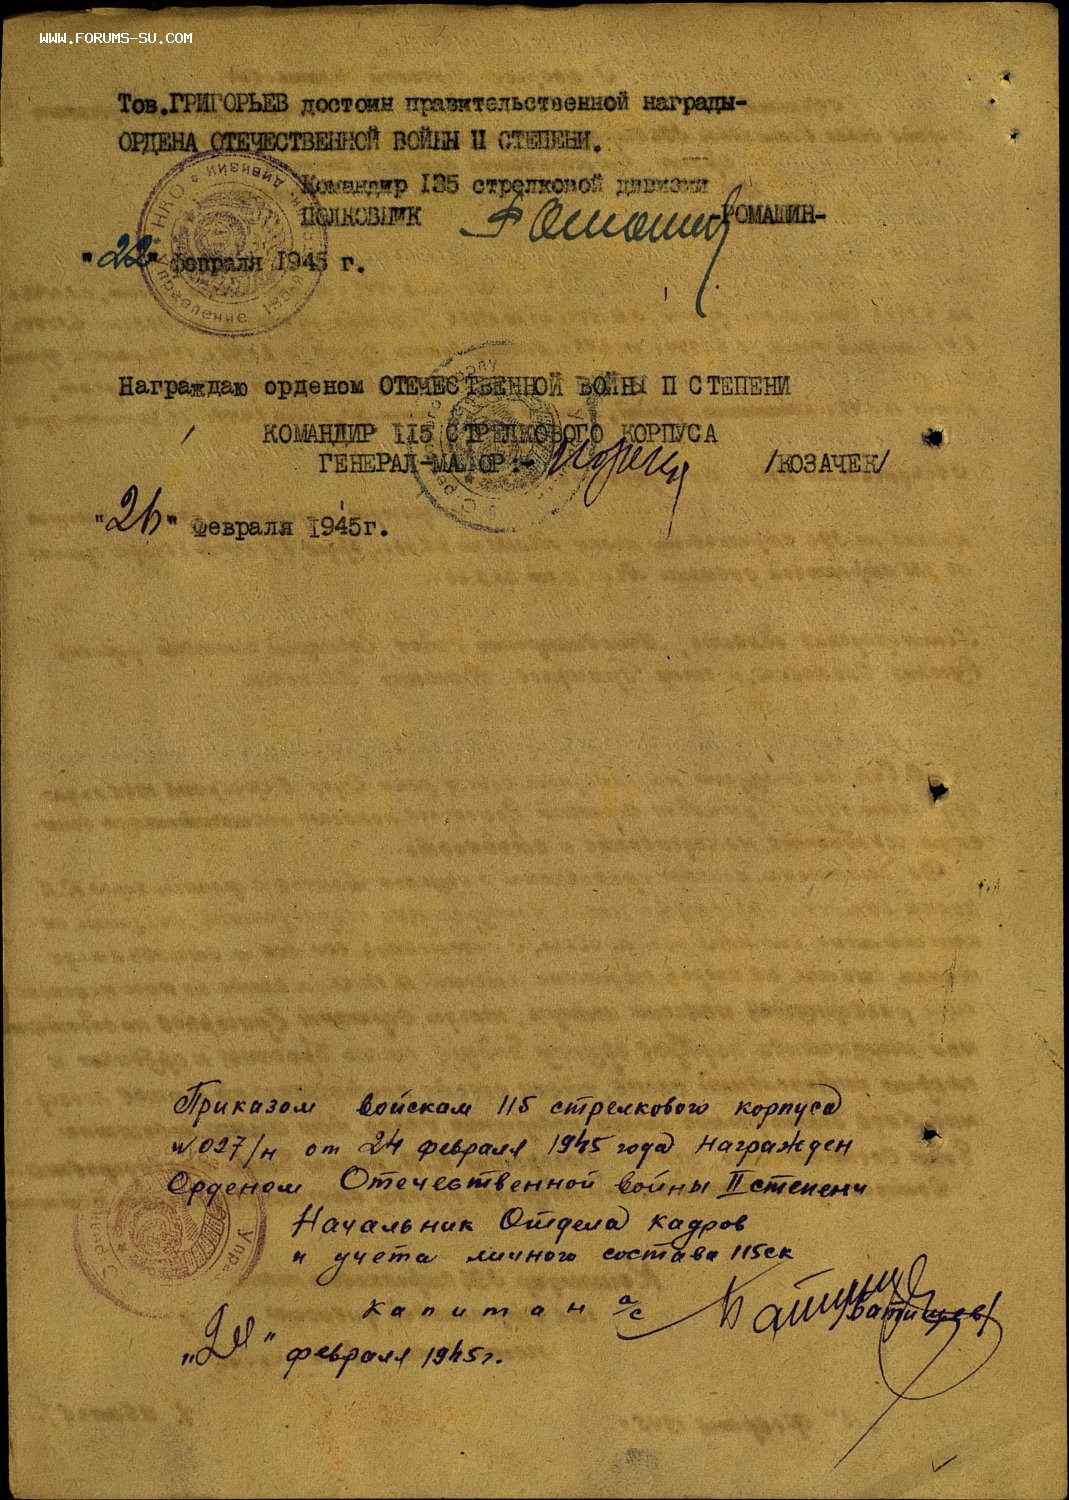 WWW.FORUMS-SU.COM
Тов.ГРИГОРЬЕВ достоин правительственной награды-
ОРДЕНА ОТЕЧЕСТВЕННОЙ ВОЙНЫ II СТЕПЕНИ.
Командир 135 стрелковой дивизии
ПОЛКОВНИК -РОМАШИН-
"22" февраля 1945 г.
Награждаю орденом ОТЕЧЕСТВЕННОЙ ВОЙНЫ П СТЕПЕНИ
КОМАНДИР 115 СТРЕЛКОВОГО КОРПУСА
ГЕНЕРАЛ-МАЙОР:- /КОЗАЧЕК/
"26" Февраля 1945г.
Приказом войскам 115 стрелкового корпуса
№027/н от 24 февраля 1945 года награжден
Орденом Отечественной войны II степени
Начальник Отдела кадров
и учета личного состава 115ск
капитан а/с /Батищев/
февраля 1945г.